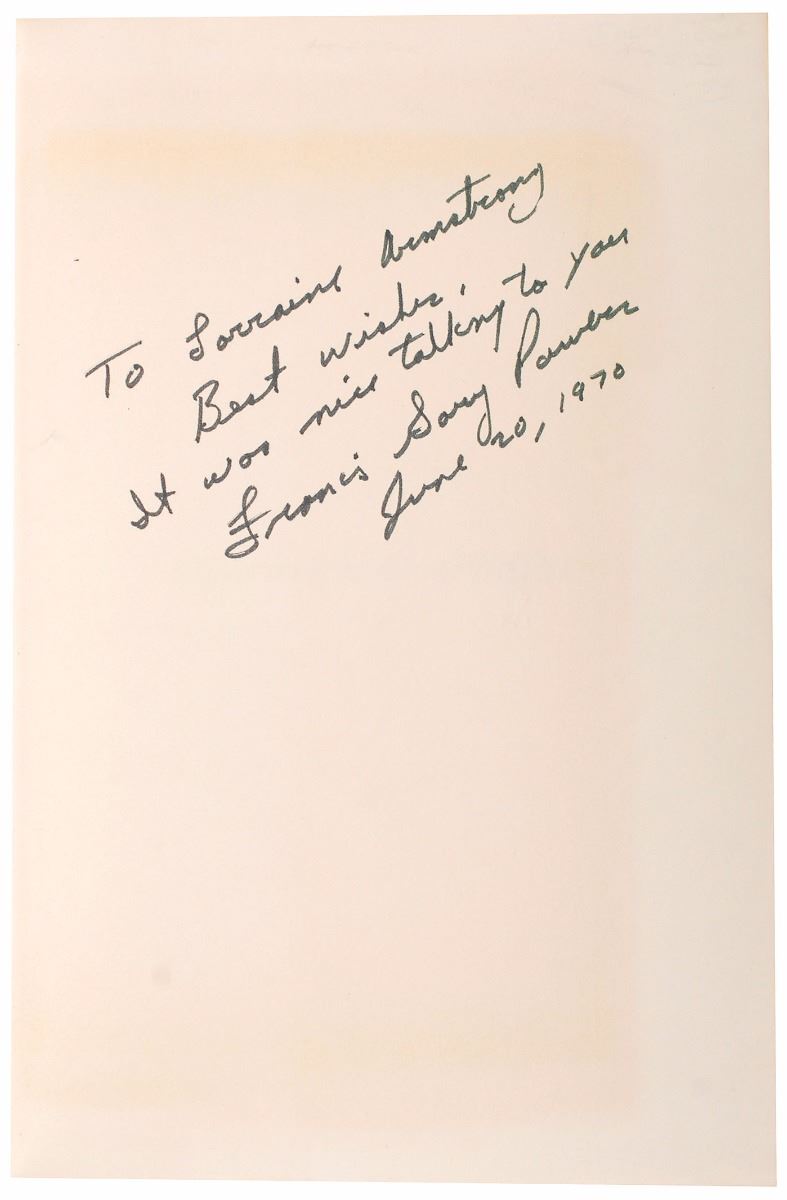 To Lorraine Armstrong
Best wishes,
It was nice talking to you
Francis Gary Powers
June 20, 1970